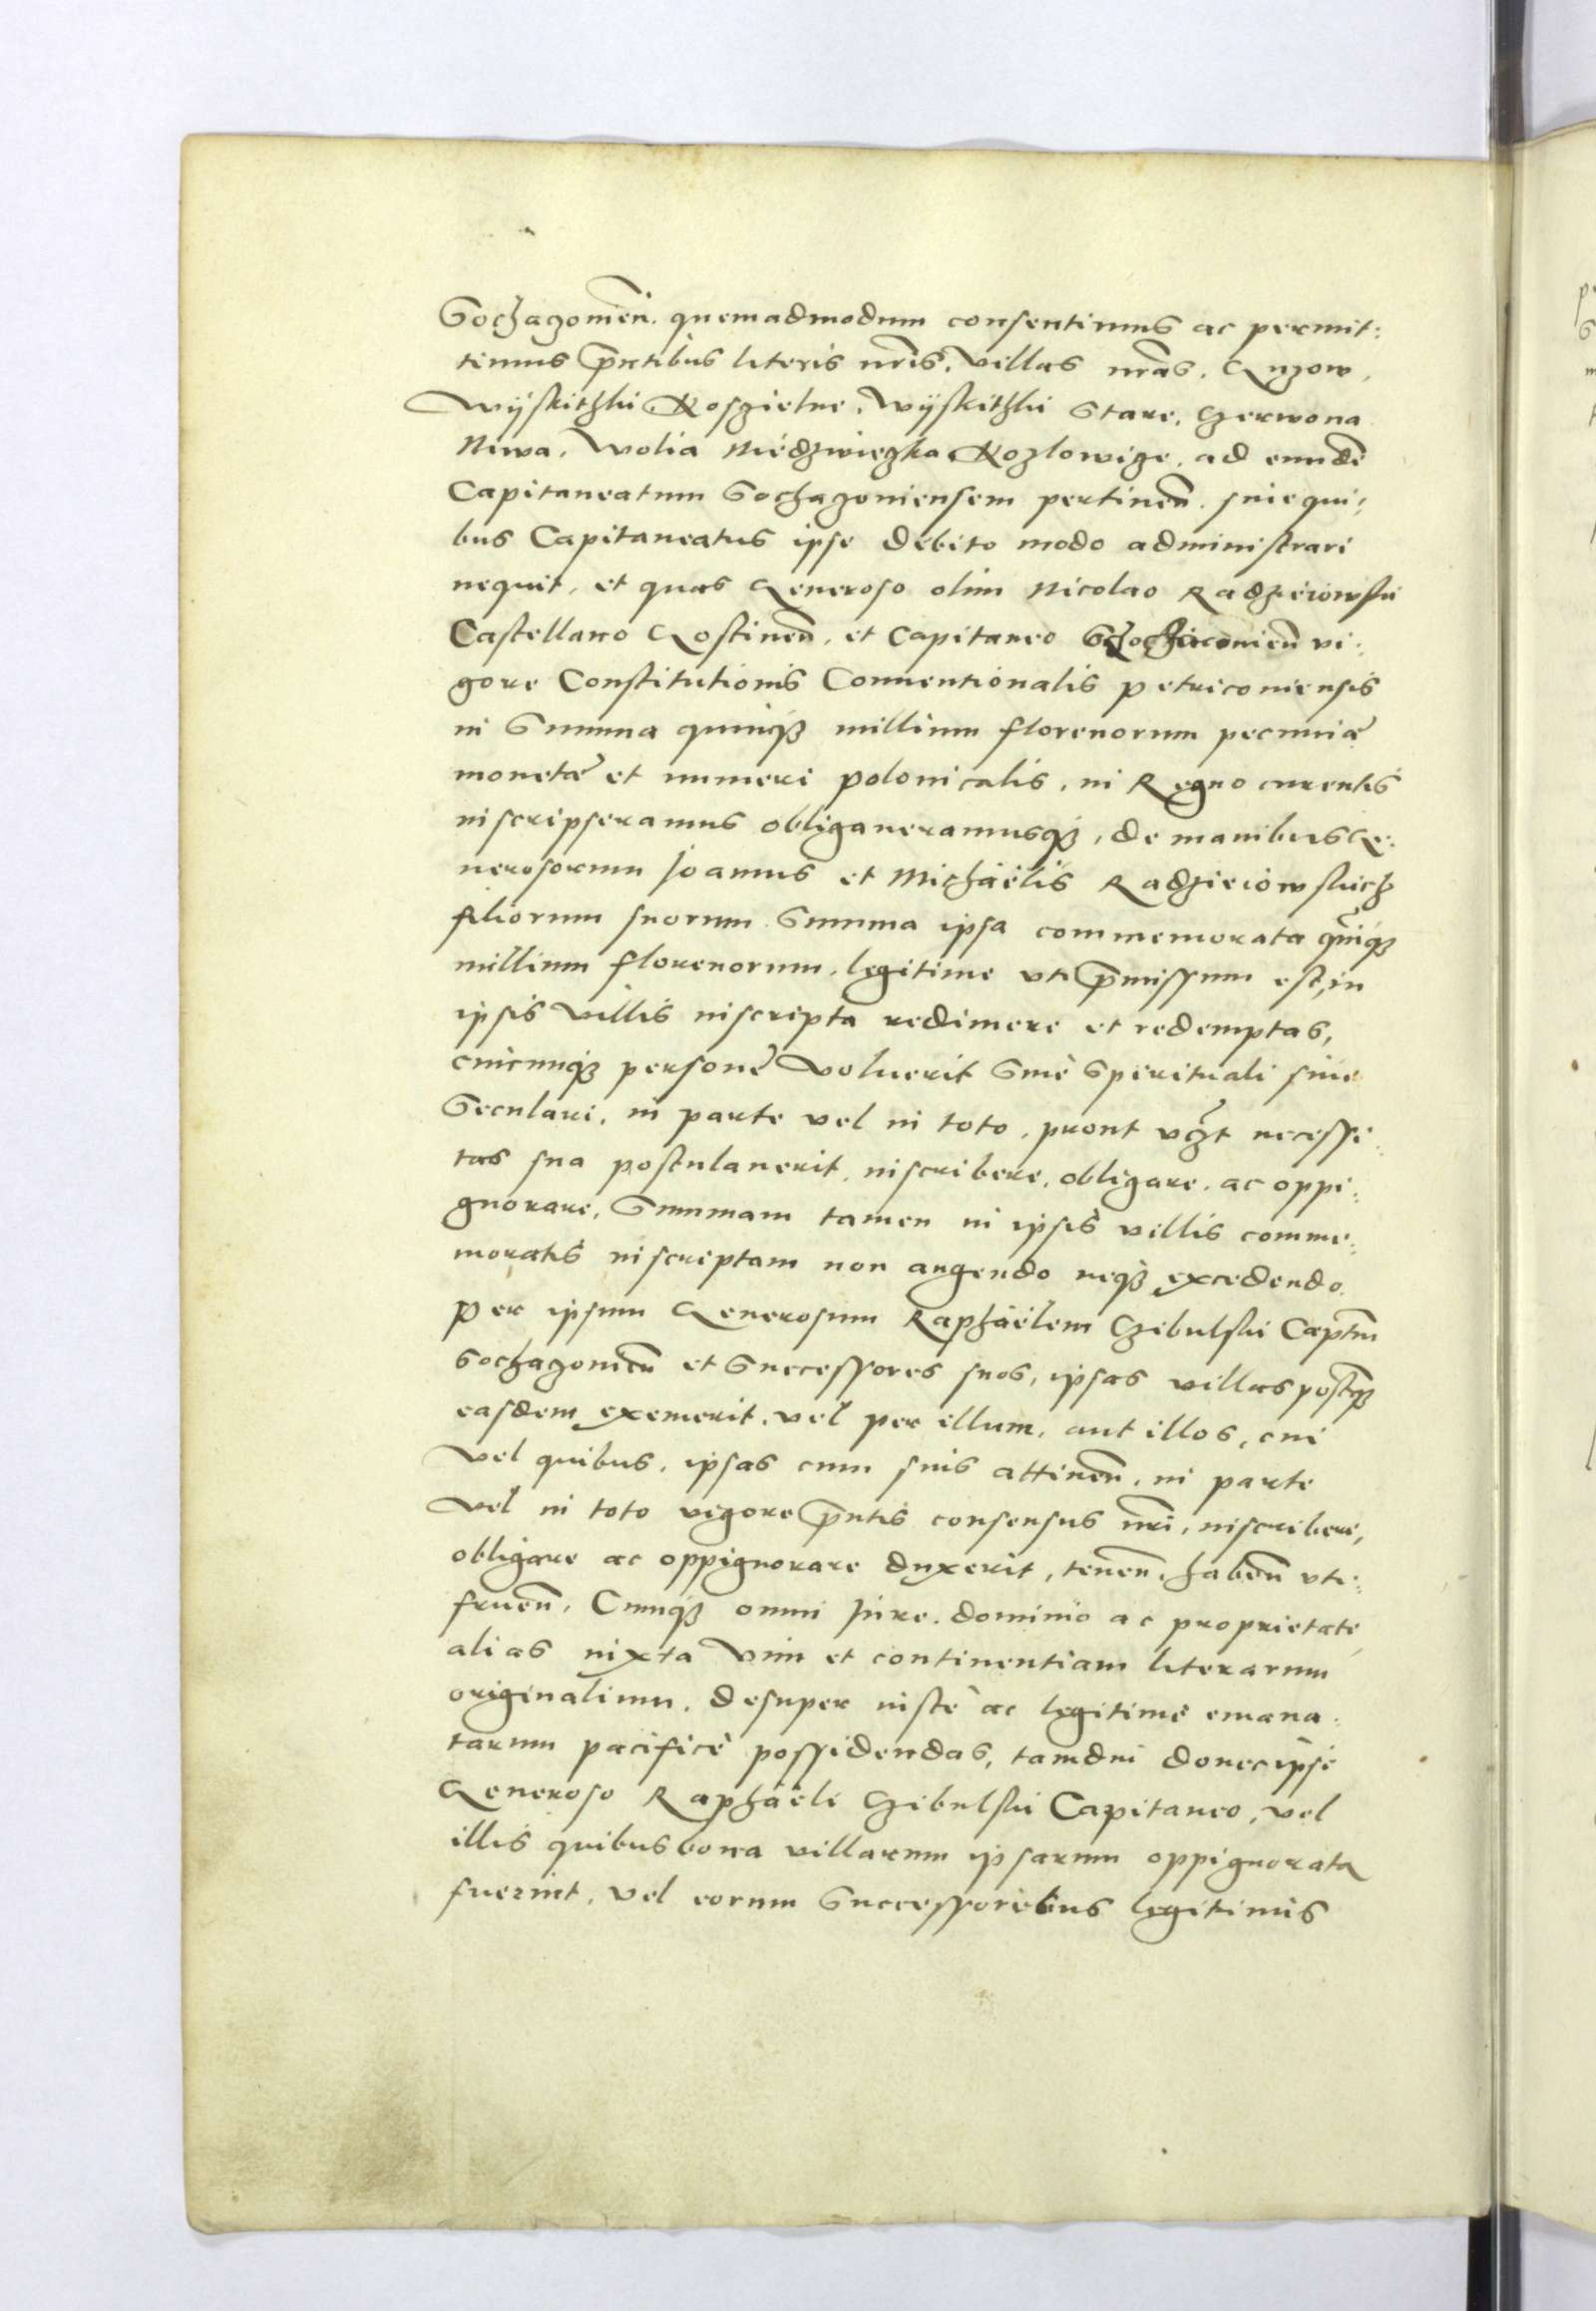 Sochaczomien̄. quemadmodum consentimus ac permit:
timus p̄ntibus literis nr̄is. Villas nr̄as. Guzow,
Wijskithki Kosczielne. Wijskithki Stare, Czerwona
Niwa. Wolia Miedzwieczka Kozlowicze. ad eundē
Capitaneatum Sochaczoniensem pertinen̄. sine qui:
bus Capitaneatus ipse debito modo administrari
nequit, et quas Generoso olim Nicolao Radzieiowski
Castellano Gostinen̄. et Capitaneo vi:
gore Constitutionis Conuentionalis Petriconiensis
in Summa quinq₃ millium florenorum pecuniæ
monetæ et numeri polonicalis, in Regno currentis
inscripseramus obligaueramusq₃, de manibus Ge:
nerosorum Joannis et Michaëlis Radzieiowskich
filiorum suorum Summa ipsa commemorata quinq₃
millium florenorum, legitime vti p̄missum est, in
ipsis Villis inscripta redimere et redemptas,
cuicunq₃ personè Voluerit Siuè Spirituali siue
Seculari, in parte vel in toto, prout necessi:
tas sua postulauerit, inscribere, obligare, ac oppi:
gnorare, Summam tamen in ipsis villis comme:
moratis inscriptam non augendo neq₃ excedendo.
Per ipsum Generosum Raphaëlem Czibulski Capt̄m
Sochaczonien̄ et Successores suos, ipsas villas postq̄₃
easdem exemerit. vel per illum, aut illos, cui
Vel quibus, ipsas cum suis attinen̄. in parte
Vel in toto vigore p̄ntis consensus nr̄i, inscribere,
obligare ac oppignorare duxerit, tenen̄. haben̄ vti:
fruen̄. Cumq₃ omni Iure. dominio ac proprietate
alias iuxta Vim et continentiam literarum
originalium. desuper iustè ac legitimè emana:
tarum pacificè possidendas, tamdiu donec ipsi
Generoso Raphaëli Czibulski Capitaneo, vel
illis quibus bona villarum ipsarum oppignorata
fuerint, vel eorum Successoribus legitimis